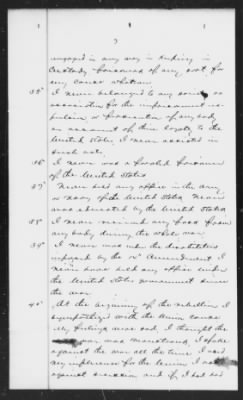 engaged in any way in holding in
custody prisoners of any sort for
any cause whatever
35" I never belonged to any society or
association for the imprisonment ex-
pulsion or persecution of any body
on account of their loyalty to the
United States. I never assisted in
such acts.
36" I never was a paroled prisoner
of the United States
37" Never held any office in the army
or navy of the United States never
was educated by the United States
38" I never received any pass from
any body during the whole war.
39" I never was under the disabilities
imposed by the 14" Amendment I
never have held any office under
the United States government since
the war.
40" At the beginning of the rebellion I
sympathized with the Union cause
My feelings were sad. I thought the
war was I spoke
against the war all the time I used
my influence for the Union I
against secession and if I had